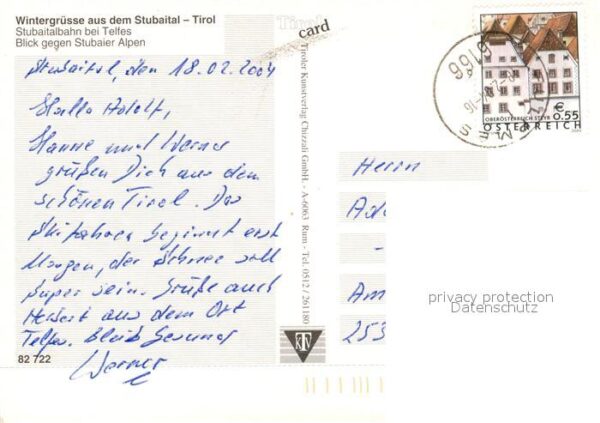 Wintergrüsse aus dem Stubaital – Tirol
Stubaitalbahn bei Telfes
Blick gegen Stubaier Alpen
Tirol
card
Stubaital, den 18.02.2004
Hallo Adolf,
Hanne und Werner
grüßen Dich aus dem
schönen Tirol. Das
Skifahren beginnt erst
Morgen, der Schnee soll
super sein. Grüße auch
Herbert aus dem Ort
Telfes. Bleib Gesund
Werner
82 722
Tiroler Kunstverlag Chizzali GmbH. - A-6063 Rum - Tel. 0512 / 261180
KTV
6166
€ 0.55
OBERÖSTERREICH STEYR
ÖSTERREICH
Herrn
Am
253
privacy protection
Datenschutz